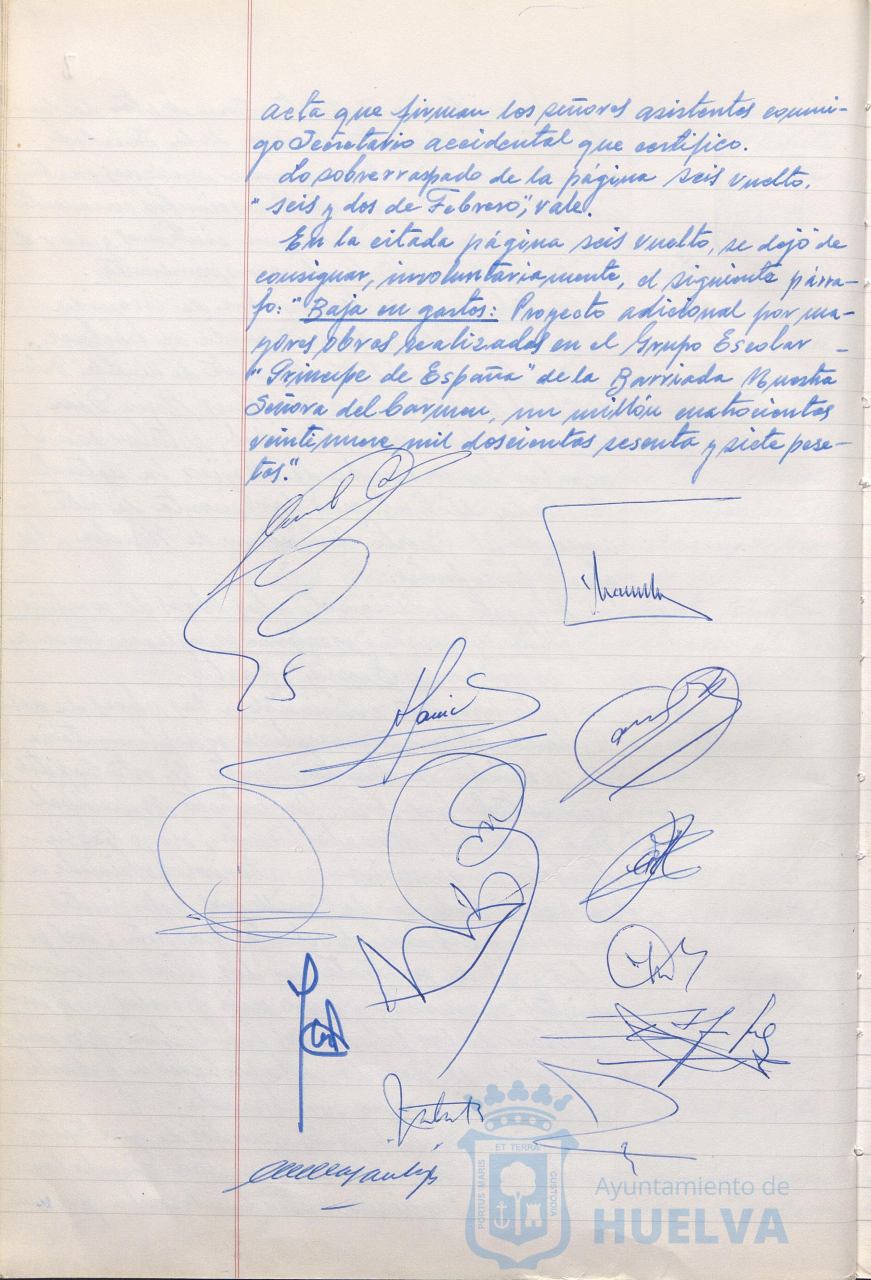 acta que firman los señores asistentes conmi-
go Secretario accidental que certifico.
Lo sobrerraspado de la página seis vuelto,
"seis y dos de Febrero", vale.
En la citada página seis vuelto, se dejó de
consignar, involuntariamente, el siguiente párra-
fo: "Baja en gastos: Proyecto adicional por ma-
yores obras realizadas en el Grupo Escolar -
"Príncipe de España" de la Barriada Nuestra
Señora del Carmen, un millón cuatrocientas
veintinueve mil doscientas sesenta y siete pese-
tas."
ET TERRAE
PORTUS MARIS
CUSTODIA
Ayuntamiento de
HUELVA